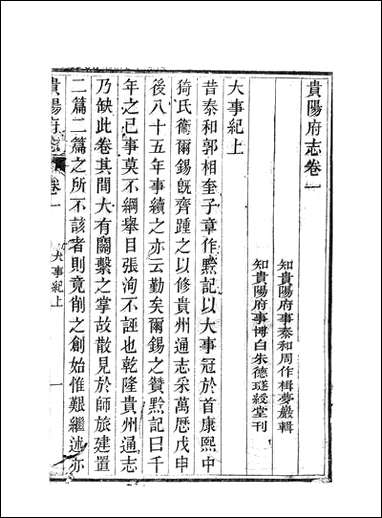 貴陽府志卷一
知貴陽府事泰和周作楫夢巖輯
知貴陽府事博白朱德璲綬堂刊
大事紀上
昔泰和郭相奎子章作黔記以大事冠於首康熙中
猗氏衞爾錫旣齊踵之以修貴州通志采萬厯戊申
後八十五年事續之亦云勤矣爾錫之贊黔記曰千
年之已事莫不綱舉目張洵不誣也乾隆貴州通志
乃缺此卷其間大有關繫之掌故散見於師旅建置
二篇二篇之所不該者則竟削之創始惟艱繼述亦
貴陽府志
卷一
大事紀上
一